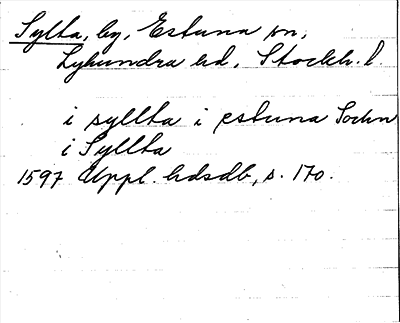 Sylta, by, Estuna sn,
Lyhundra hd, Stockh. l.
i syllta i estuna Sochn
i Syllta
1597 Uppl. hdsdb, s. 170.